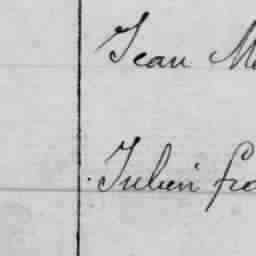 Jean M
Julien